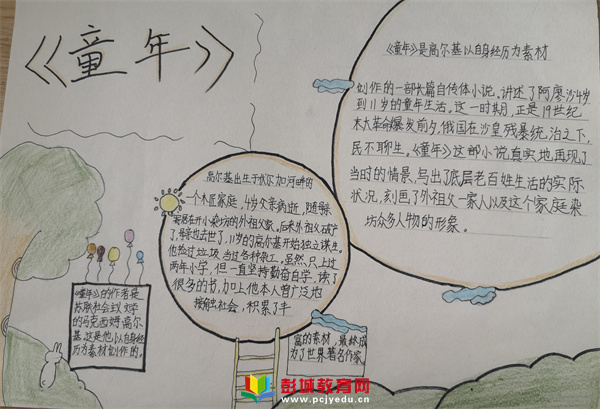 《童年》
《童年》是高尔基以自身经历为素材
创作的一部长篇自传体小说。讲述了阿廖沙4岁
到11岁的童年生活。这一时期,正是19世纪
末大革命爆发前夕,俄国在沙皇残暴统治之下,
民不聊生。《童年》这部小说真实地再现了
当时的情景,写出了底层老百姓生活的实际
状况,刻画了外祖父一家人以及这个家庭染
坊众多人物的形象。
高尔基出生于伏尔加河畔的
一个木匠家庭,4岁父亲病逝,随母亲
寄居在开小染坊的外祖父家。后来外祖父破产
了,母亲也去世了,11岁的高尔基开始独立谋生。
他捡过垃圾,当过各种杂工。虽然只上过
两年小学,但一直坚持勤奋自学,读了
很多的书,加上他本人曾广泛地
接触社会,积累了丰
富的素材,最终成
为了世界著名作家。
《童年》的作者是
苏联社会主义文学
的马克西姆·高尔
基。这是他以自身经
历为素材创作的。
彭城教育网
www.pcjyedu.cn